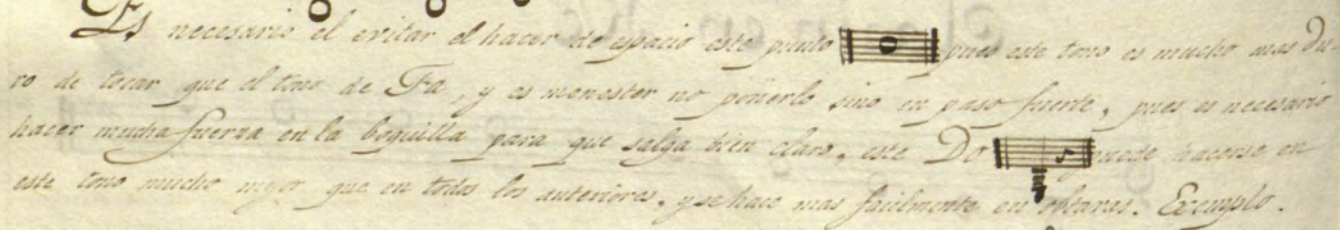 Es necesario el evitar el hacer de espacio este punto pues este tono es mucho mas du-
ro de tocar que el tono de Fa, y es menester no ponerlo sino en paso fuerte, pues es necesario
hacer mucha fuerza en la boquilla para que salga bien claro, este Do puede hacerse en
este tono mucho mejor que en todos los anteriores, y se hace mas facilmente en obtavas. Exemplo.